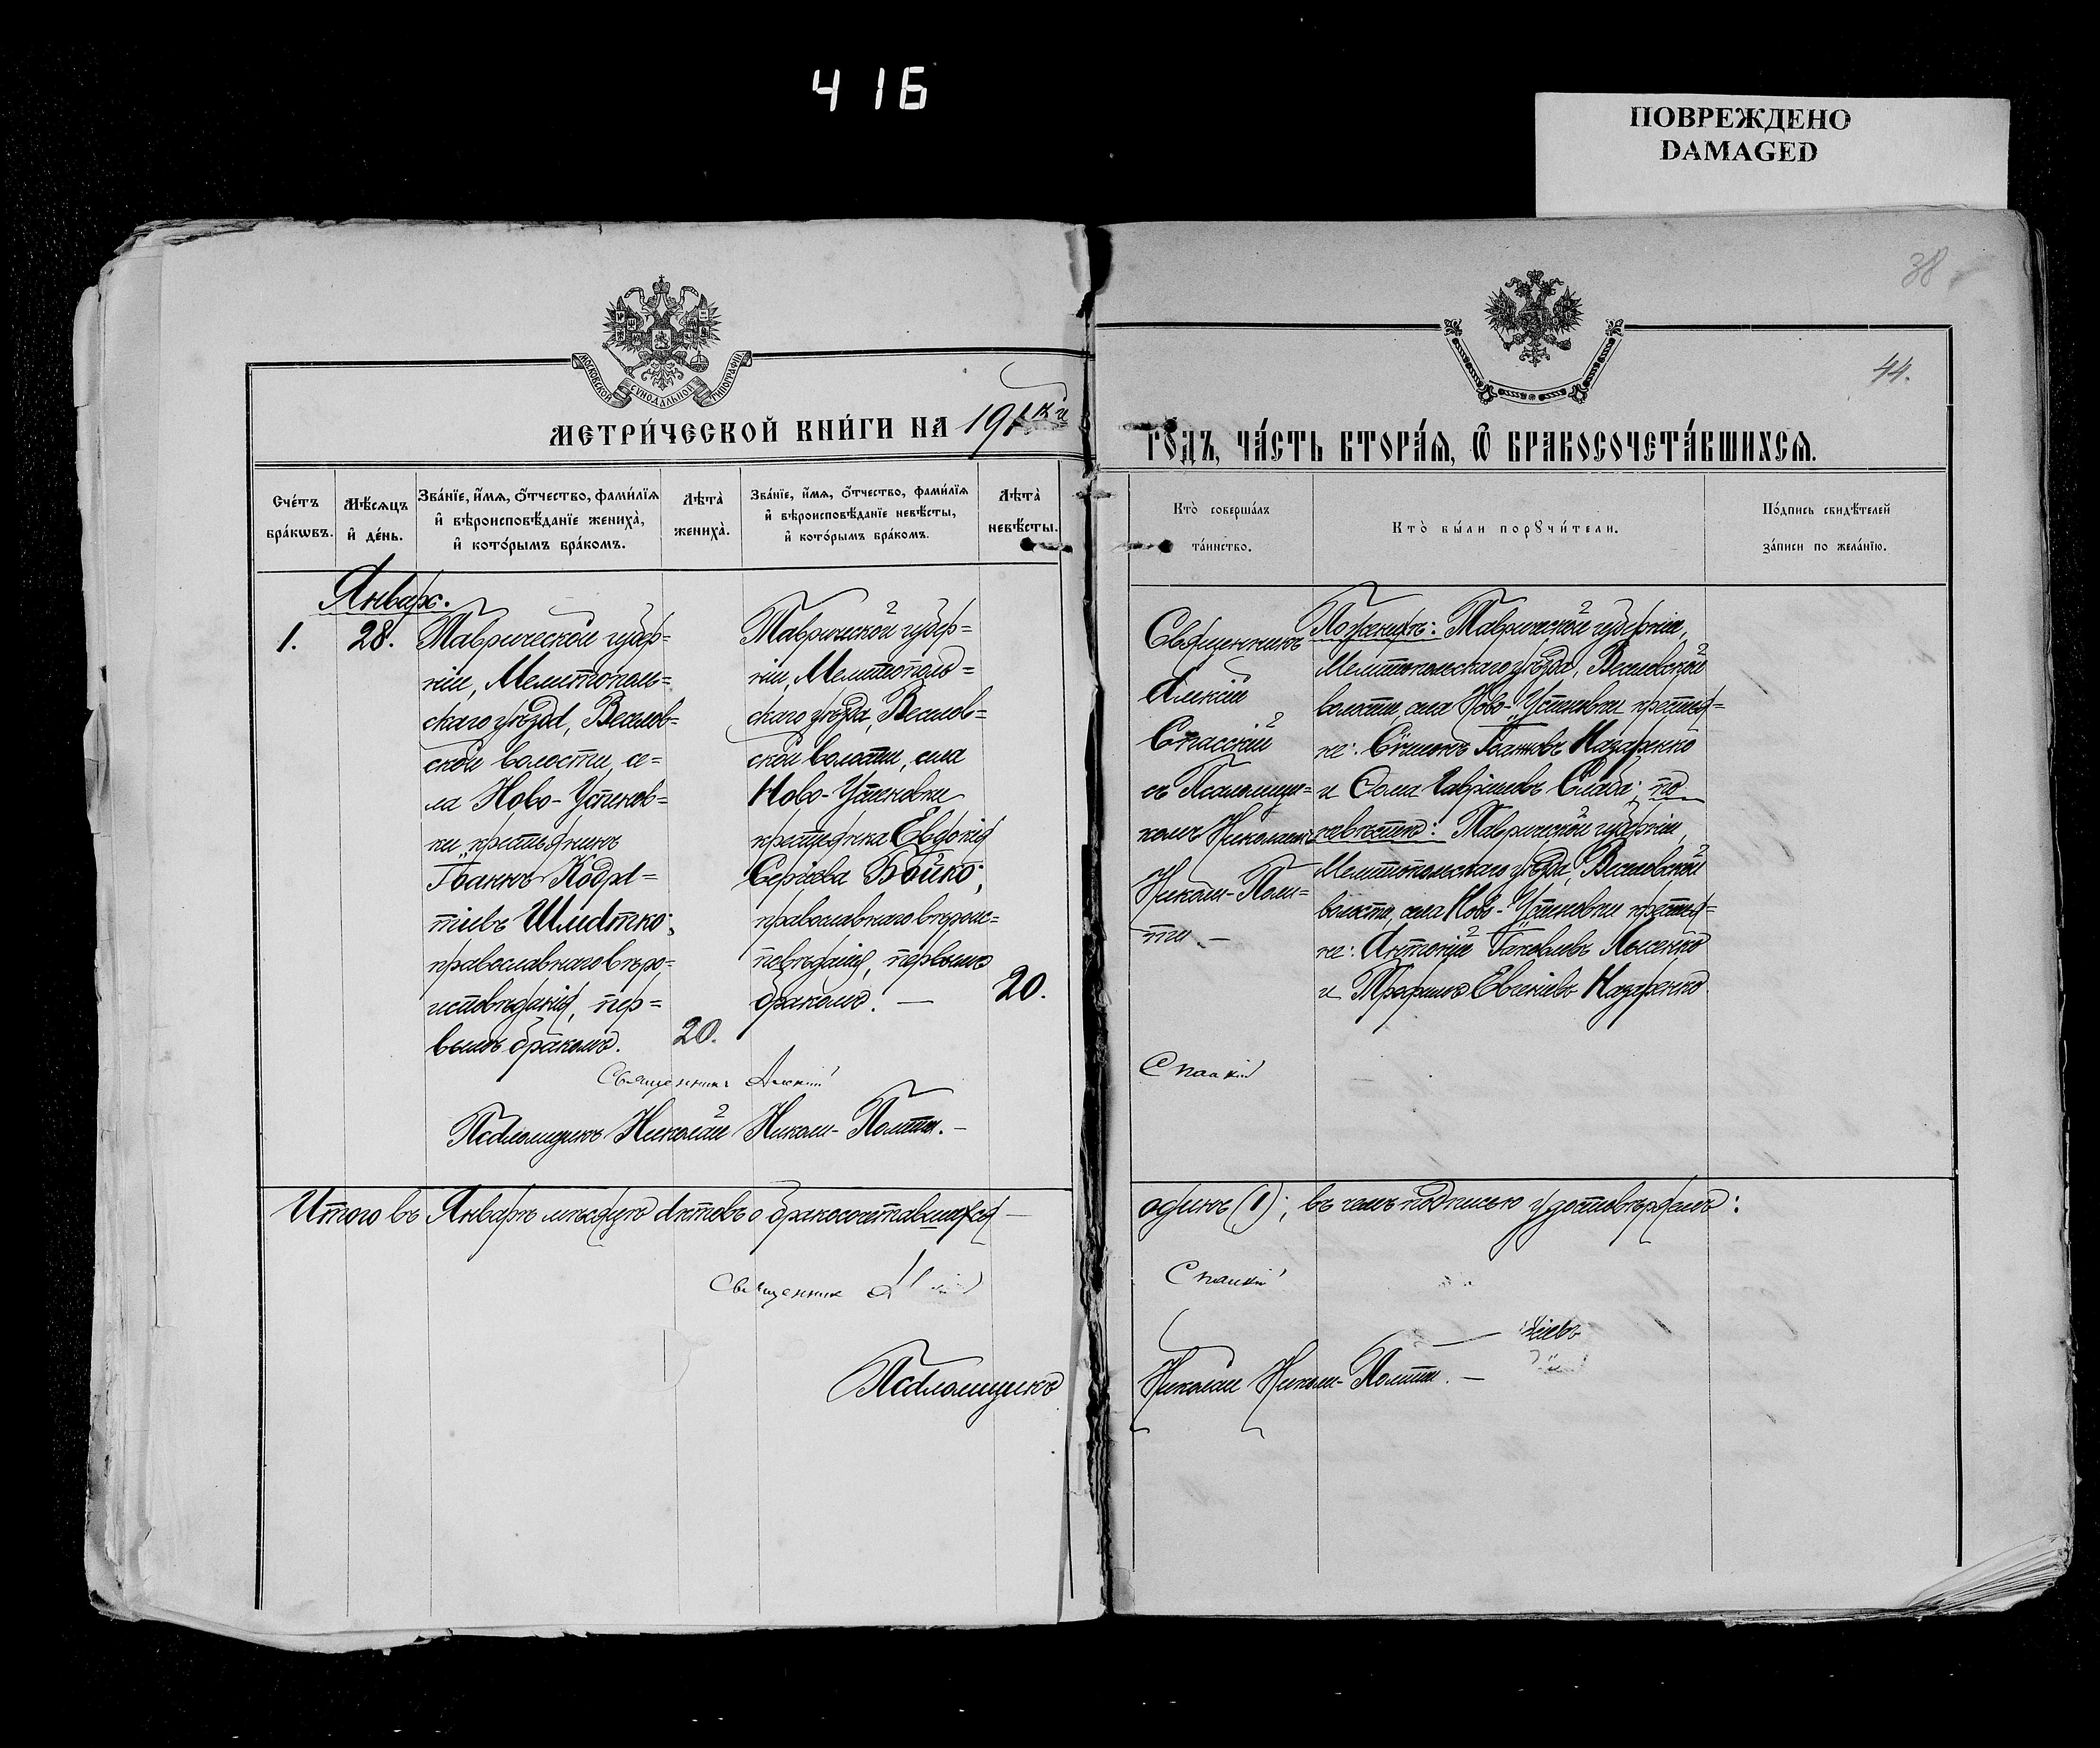 416
ПОВРЕЖДЕНО
DAMAGED
38
44.
МОСКОВСКОЙ СѴНОДАЛЬНОЙ ТИПОГРАФІИ
МЕТРИ́ЧЕСКОЙ КНИ́ГИ НА 191
ГОДЪ, ЧА́СТЬ ВТОРА́Я, Ѽ БРАКОСОЧЕТА́ВШИХСЯ.
Сче́тъ бра́кѡвъ.
Мѣ́сяцъ и҆ де́нь.
Зва́нїе, и҆́мя, ѻ҆́тчество, фами́лїя
и҆ вѣроисповѣ́данїе жениха̀,
и҆ кото́рымъ бра́комъ.
Лѣта̀ жениха̀.
Зва́нїе, и҆́мя, ѻ҆́тчество, фами́лїя
и҆ вѣроисповѣ́данїе невѣ́сты,
и҆ кото́рымъ бра́комъ.
Лѣта̀ невѣ́сты.
Кто̀ соверша́лъ та́инство.
Кто̀ бы́ли порꙋчи́тели.
По́дпись свидѣ́телей
за́писи по жела́нїю.
Январь.
1.
28.
Таврической губер=
ніи, Мелитополь=
скаго уѣзда, Веселов=
ской волости, се=
ла Ново-Успенов=
ки крестьянинъ
Іоаннъ Кодра=
тіевъ Шлатко;
православнаго вѣро=
исповѣданія, пер=
вымъ бракомъ.
20.
Таврической губер=
ніи, Мелитополь=
скаго уѣзда, Веселов=
ской волости, села
Ново-Успеновки
крестьянка Евдокія
Сергіева Бойко;
православнаго вѣроис=
повѣданія, первымъ
бракомъ. —
20.
Священникъ
Алексій
Спасскій
съ Псаломщи=
комъ Николаемъ
Николи-Поли=
тги. —
По женихѣ: Таврической губерніи,
Мелитопольскаго уѣзда, Веселовской
волости, села Ново-Успеновки крестья=
не: Сѷмеонъ Іоанновъ Назаренко
и Ѳома Гавріиловъ Слаба; по
невѣстѣ: Таврической губерніи,
Мелитопольскаго уѣзда, Веселовской
волости, села Ново-Успеновки крестья=
не: Антоній Іаковлевъ Лысенко
и Трофимъ Евгеніевъ Назаренко
Священникъ Алексій
Спасскій
Псаломщикъ Николай Николи-Политги. —
Итого въ Январѣ мѣсяцѣ актовъ о бракосочетавшихся —
одинъ (1); въ чемъ подписью удостовѣряемъ:
Священник
Спасскій
Псаломщикъ
Николай Николи-Политги. —